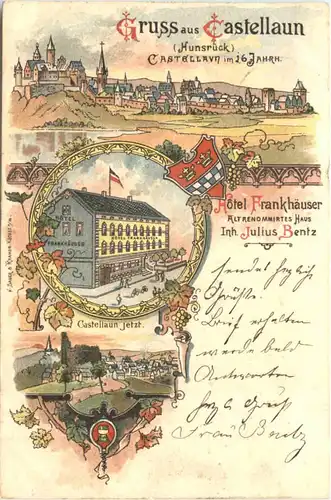 Gruss aus Castellaun
(Hunsrück)
CASTELLAUN im 16 JAHRH.
Hôtel Frankhäuser
ALTRENOMMIRTES HAUS
Inh. Julius Bentz
HÔTEL
FRANKHÄUSER
HÔTEL FRANKHÄUSER
Castellaun jetzt.
sendet herzlich
Grüße.
Brief erhalten
werde bald
Antworten
herzl. Gruß
Frau Bentz